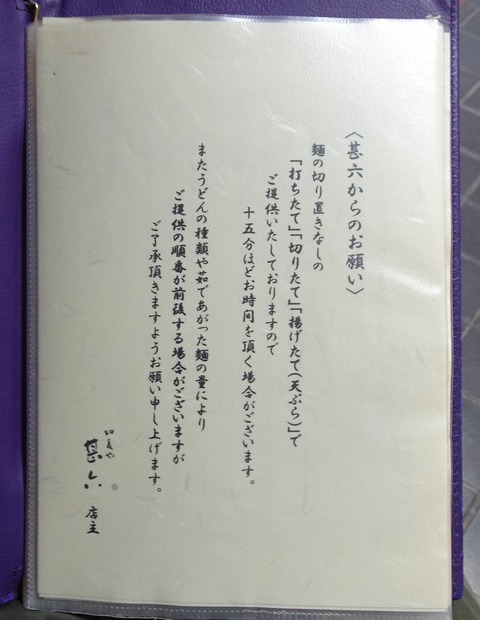 〈甚六からのお願い〉
麺の切り置きなしの
「打ちたて」「切りたて」「揚げたて(天ぷら)」で
ご提供いたしておりますので
十五分ほどお時間を頂く場合がございます。
またうどんの種類や茹であがった麺の量により
ご提供の順番が前後する場合がございますが
ご了承頂きますようお願い申し上げます。
切麦や
甚六 店主